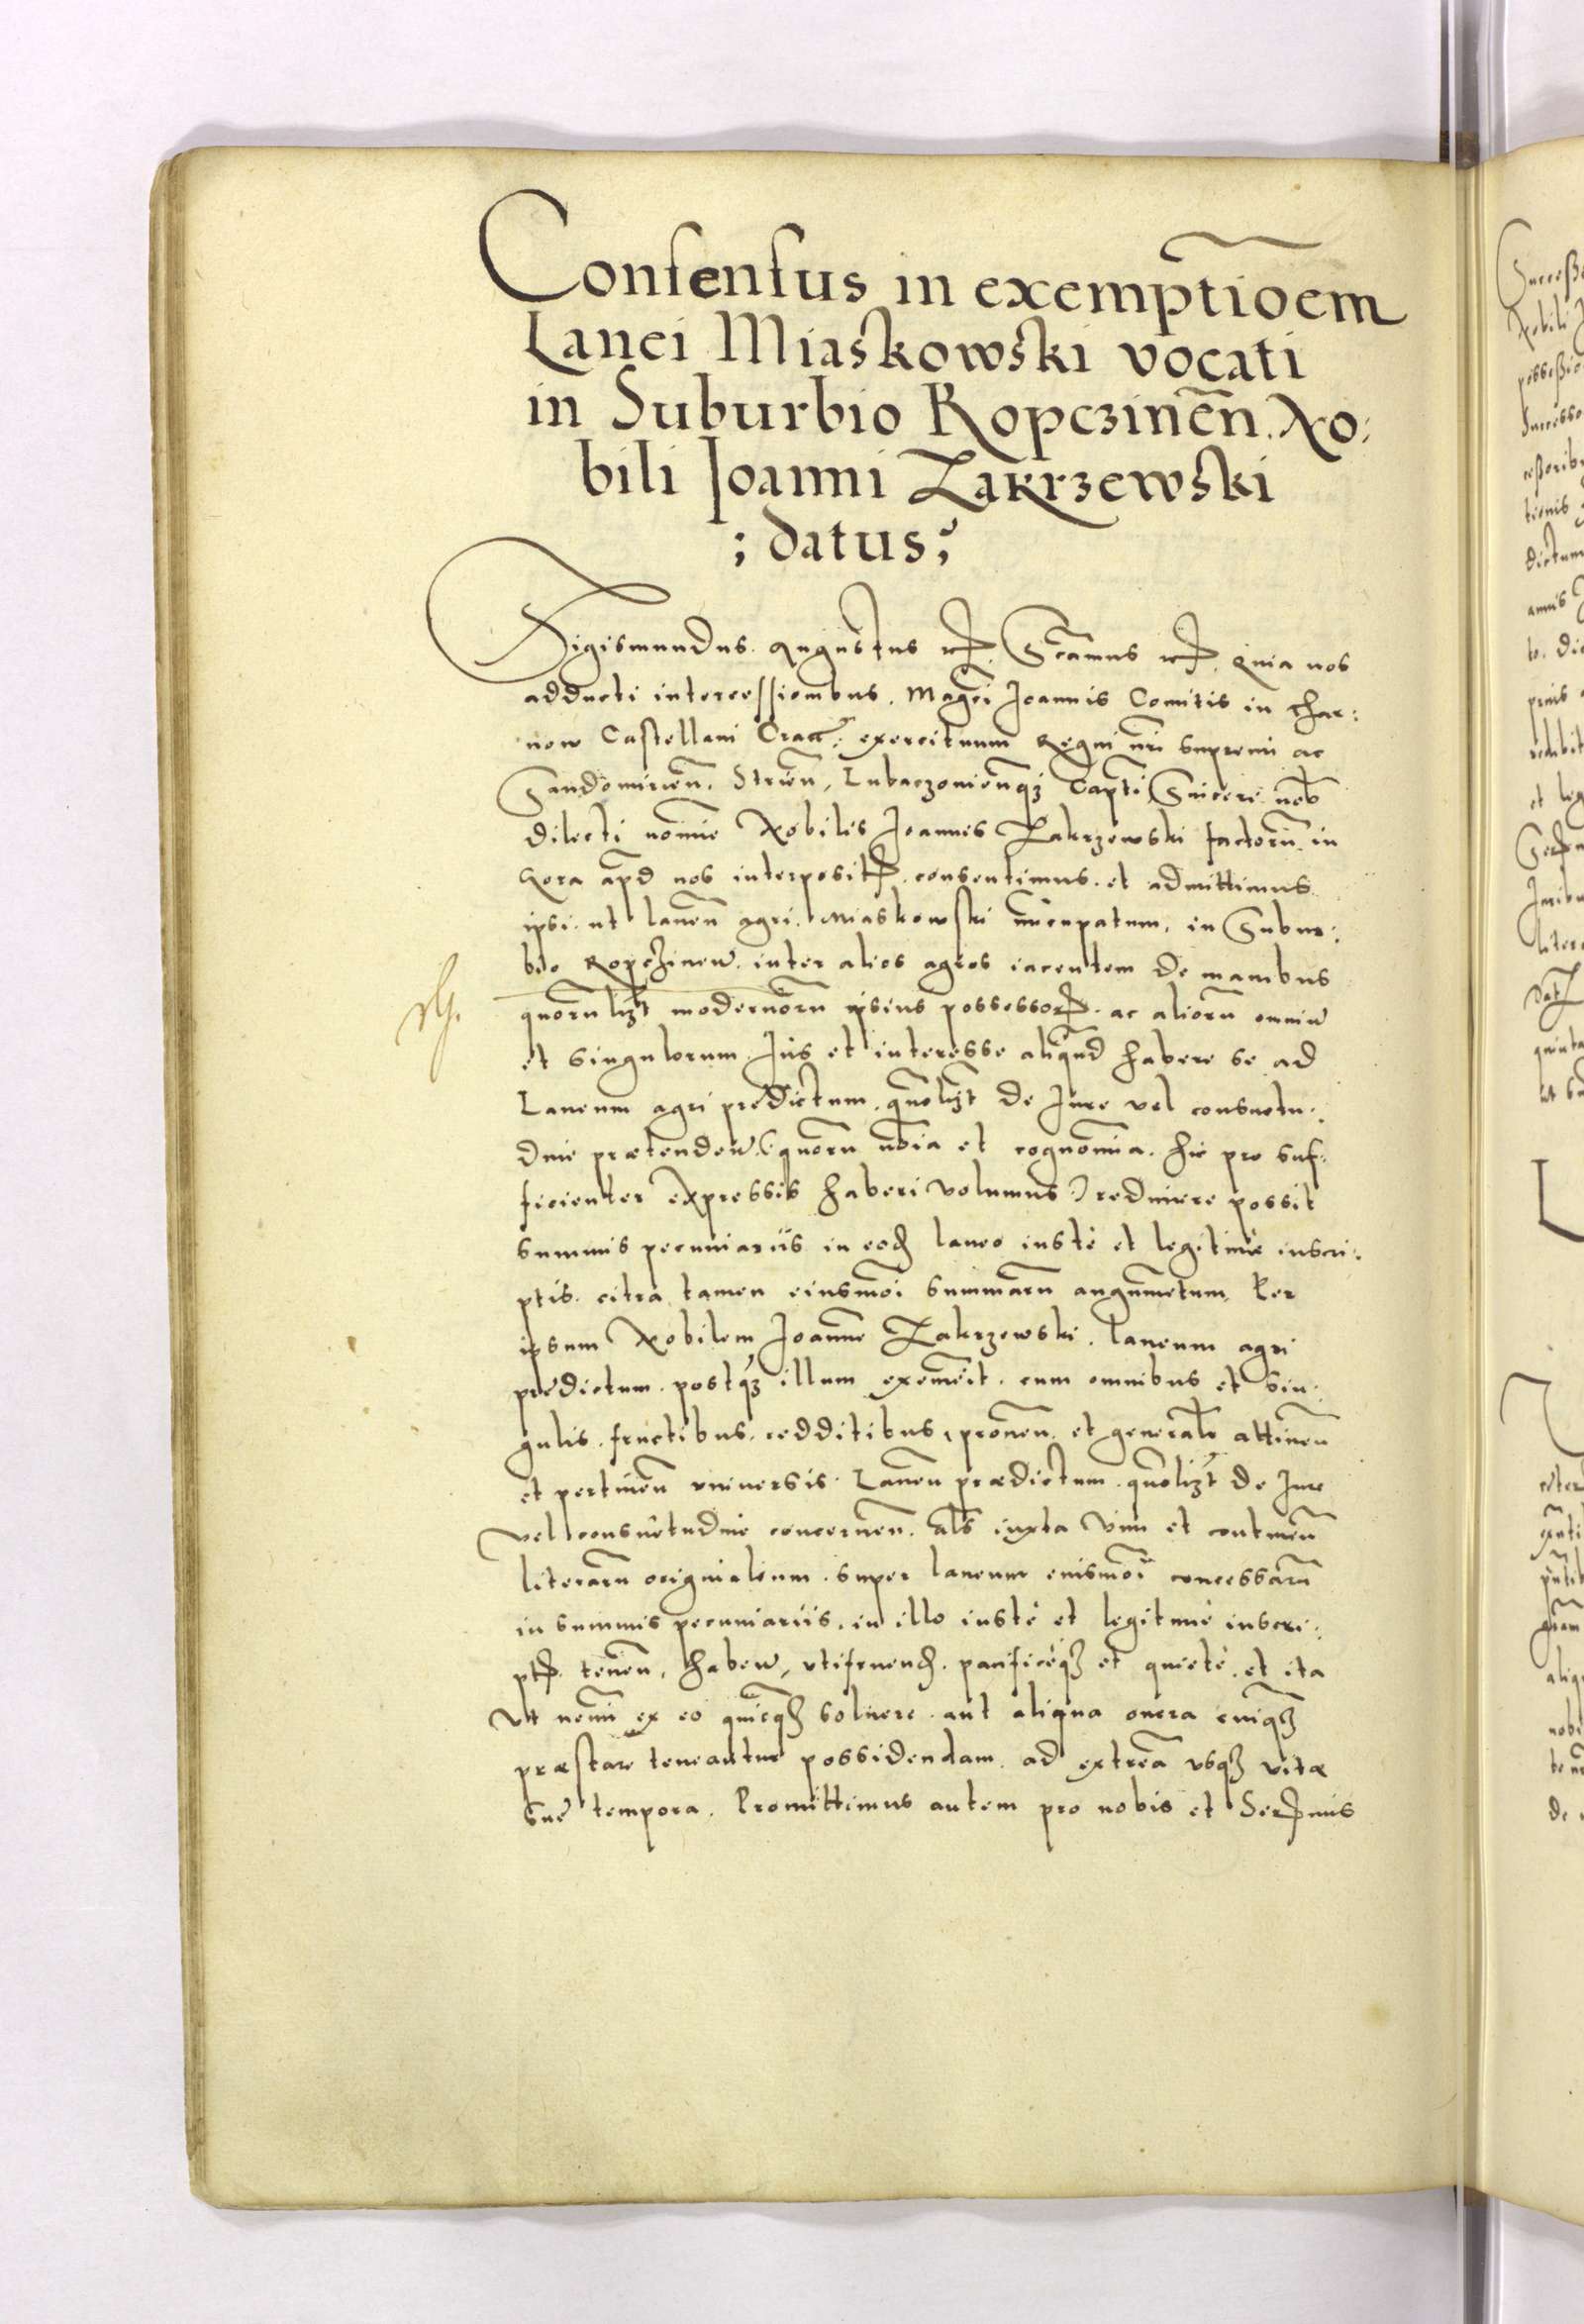 Consensus in exemptioem
Lanei Miaskowski vocati
in Suburbio Ropczinen. No:
bili Joanni Zakrzewski
; datus;
Sigismundus Augustus etc. Significamus etc. Quia nos
adducti intercessionibus. Magci Joannis Comitis in Thar:
now Castellani Cracc: exercituum Regni nri supremi ac
Sandomirien. Strien, Lubaczovienqz Capti Sincere nob
dilecti nomine Nobilis Joannis Zakrzewski factorum in
apd nos interposit. consentimus. et admittimus
ipsi. ut laneum agri. Miaskowski nuncupatum. in Subur:
bio Ropczinen. inter alios agros iacentem de manibus
quorumlizt modernorum ipsius possessor. ac aliorum omnium
et singulorum Jus et interesse aliquod habere se ad
Laneum agri predictum. quolizt de Jure vel consuetu:
dine prætenden. (quorum noia et cognomina. hic pro suf:
ficienter expressis haberi volumus) redimere possit
summis pecuniariis in eod laneo iustè et legitimè inscri:
ptis. citra tamen eiusmoi summarum augumetum. Per
ipsum Nobilem Joanne Zakrzewski. laneum agri
predictum. postqz illum exemerit. cum omnibus et sin:
gulis. fructibus. redditibus, proven. et generalr attinen
et pertinen universis. Laneum prædictum. quolizt de Jure
vel consuetudine concernen. als iuxta vim et continen
literarum originalium. super laneum eiusmoi concessarum
in summis pecuniariis. in illo iustè et legitimè inscri:
pt. tenen, haben, utifruend. pacificèqz et quietè. et ita
ut nemini ex eo quicqz solvere. aut aliqua onera cuiqz
præstare teneantur possidendam. ad extrea usqz vitæ
sue tempora. Promittimus autem pro nobis et Sermis